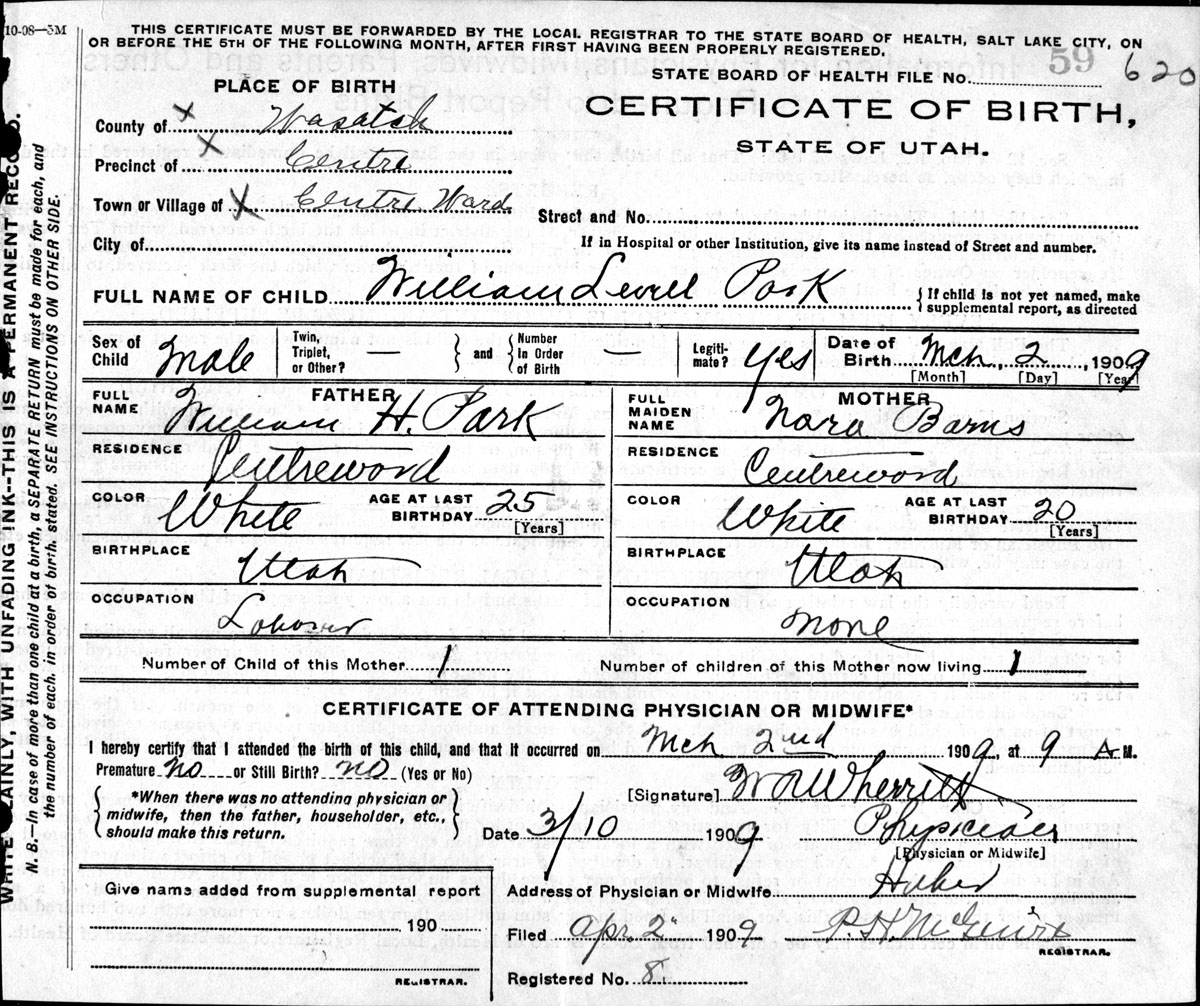 10-08—5M
THIS CERTIFICATE MUST BE FORWARDED BY THE LOCAL REGISTRAR TO THE STATE BOARD OF HEALTH, SALT LAKE CITY, ON
OR BEFORE THE 5TH OF THE FOLLOWING MONTH, AFTER FIRST HAVING BEEN PROPERLY REGISTERED.
59
STATE BOARD OF HEALTH FILE No. 620
PLACE OF BIRTH
CERTIFICATE OF BIRTH,
STATE OF UTAH.
County of Wasatch
Precinct of Centre
Town or Village of Centre Ward
Street and No.
City of
If in Hospital or other Institution, give its name instead of Street and number.
FULL NAME OF CHILD William Levell Park
{If child is not yet named, make supplemental report, as directed
Sex of Child Male
Twin, Triplet, or Other? —
and
Number In Order of Birth —
Legiti-mate? Yes
Date of Birth Mch, 2, 1909
[Month] [Day] [Year]
FATHER
FULL NAME William H. Park
RESIDENCE Centreward
COLOR White
AGE AT LAST BIRTHDAY 25
[Years]
BIRTHPLACE
Utah
OCCUPATION
Laborer
MOTHER
FULL MAIDEN NAME Nora Barns
RESIDENCE Centreward
COLOR White
AGE AT LAST BIRTHDAY 20
[Years]
BIRTHPLACE
Utah
OCCUPATION
None
Number of Child of this Mother 1
Number of children of this Mother now living 1
CERTIFICATE OF ATTENDING PHYSICIAN OR MIDWIFE*
I hereby certify that I attended the birth of this child, and that it occurred on Mch 2nd 1909, at 9 A M.
Premature No or Still Birth? No (Yes or No)
[Signature] W R Wherritt
*When there was no attending physician or
midwife, then the father, householder, etc.,
should make this return.
Date 3/10 1909
Physician
[Physician or Midwife]
Give name added from supplemental report
190
REGISTRAR.
Address of Physician or Midwife Heber
Filed Apr 2 1909
REGISTRAR.
Registered No. 8
WRITE PLAINLY, WITH UNFADING INK--THIS IS A PERMANENT RECORD.
N. B.—In case of more than one child at a birth, a SEPARATE RETURN must be made for each, and
the number of each, in order of birth, stated. SEE INSTRUCTIONS ON OTHER SIDE.